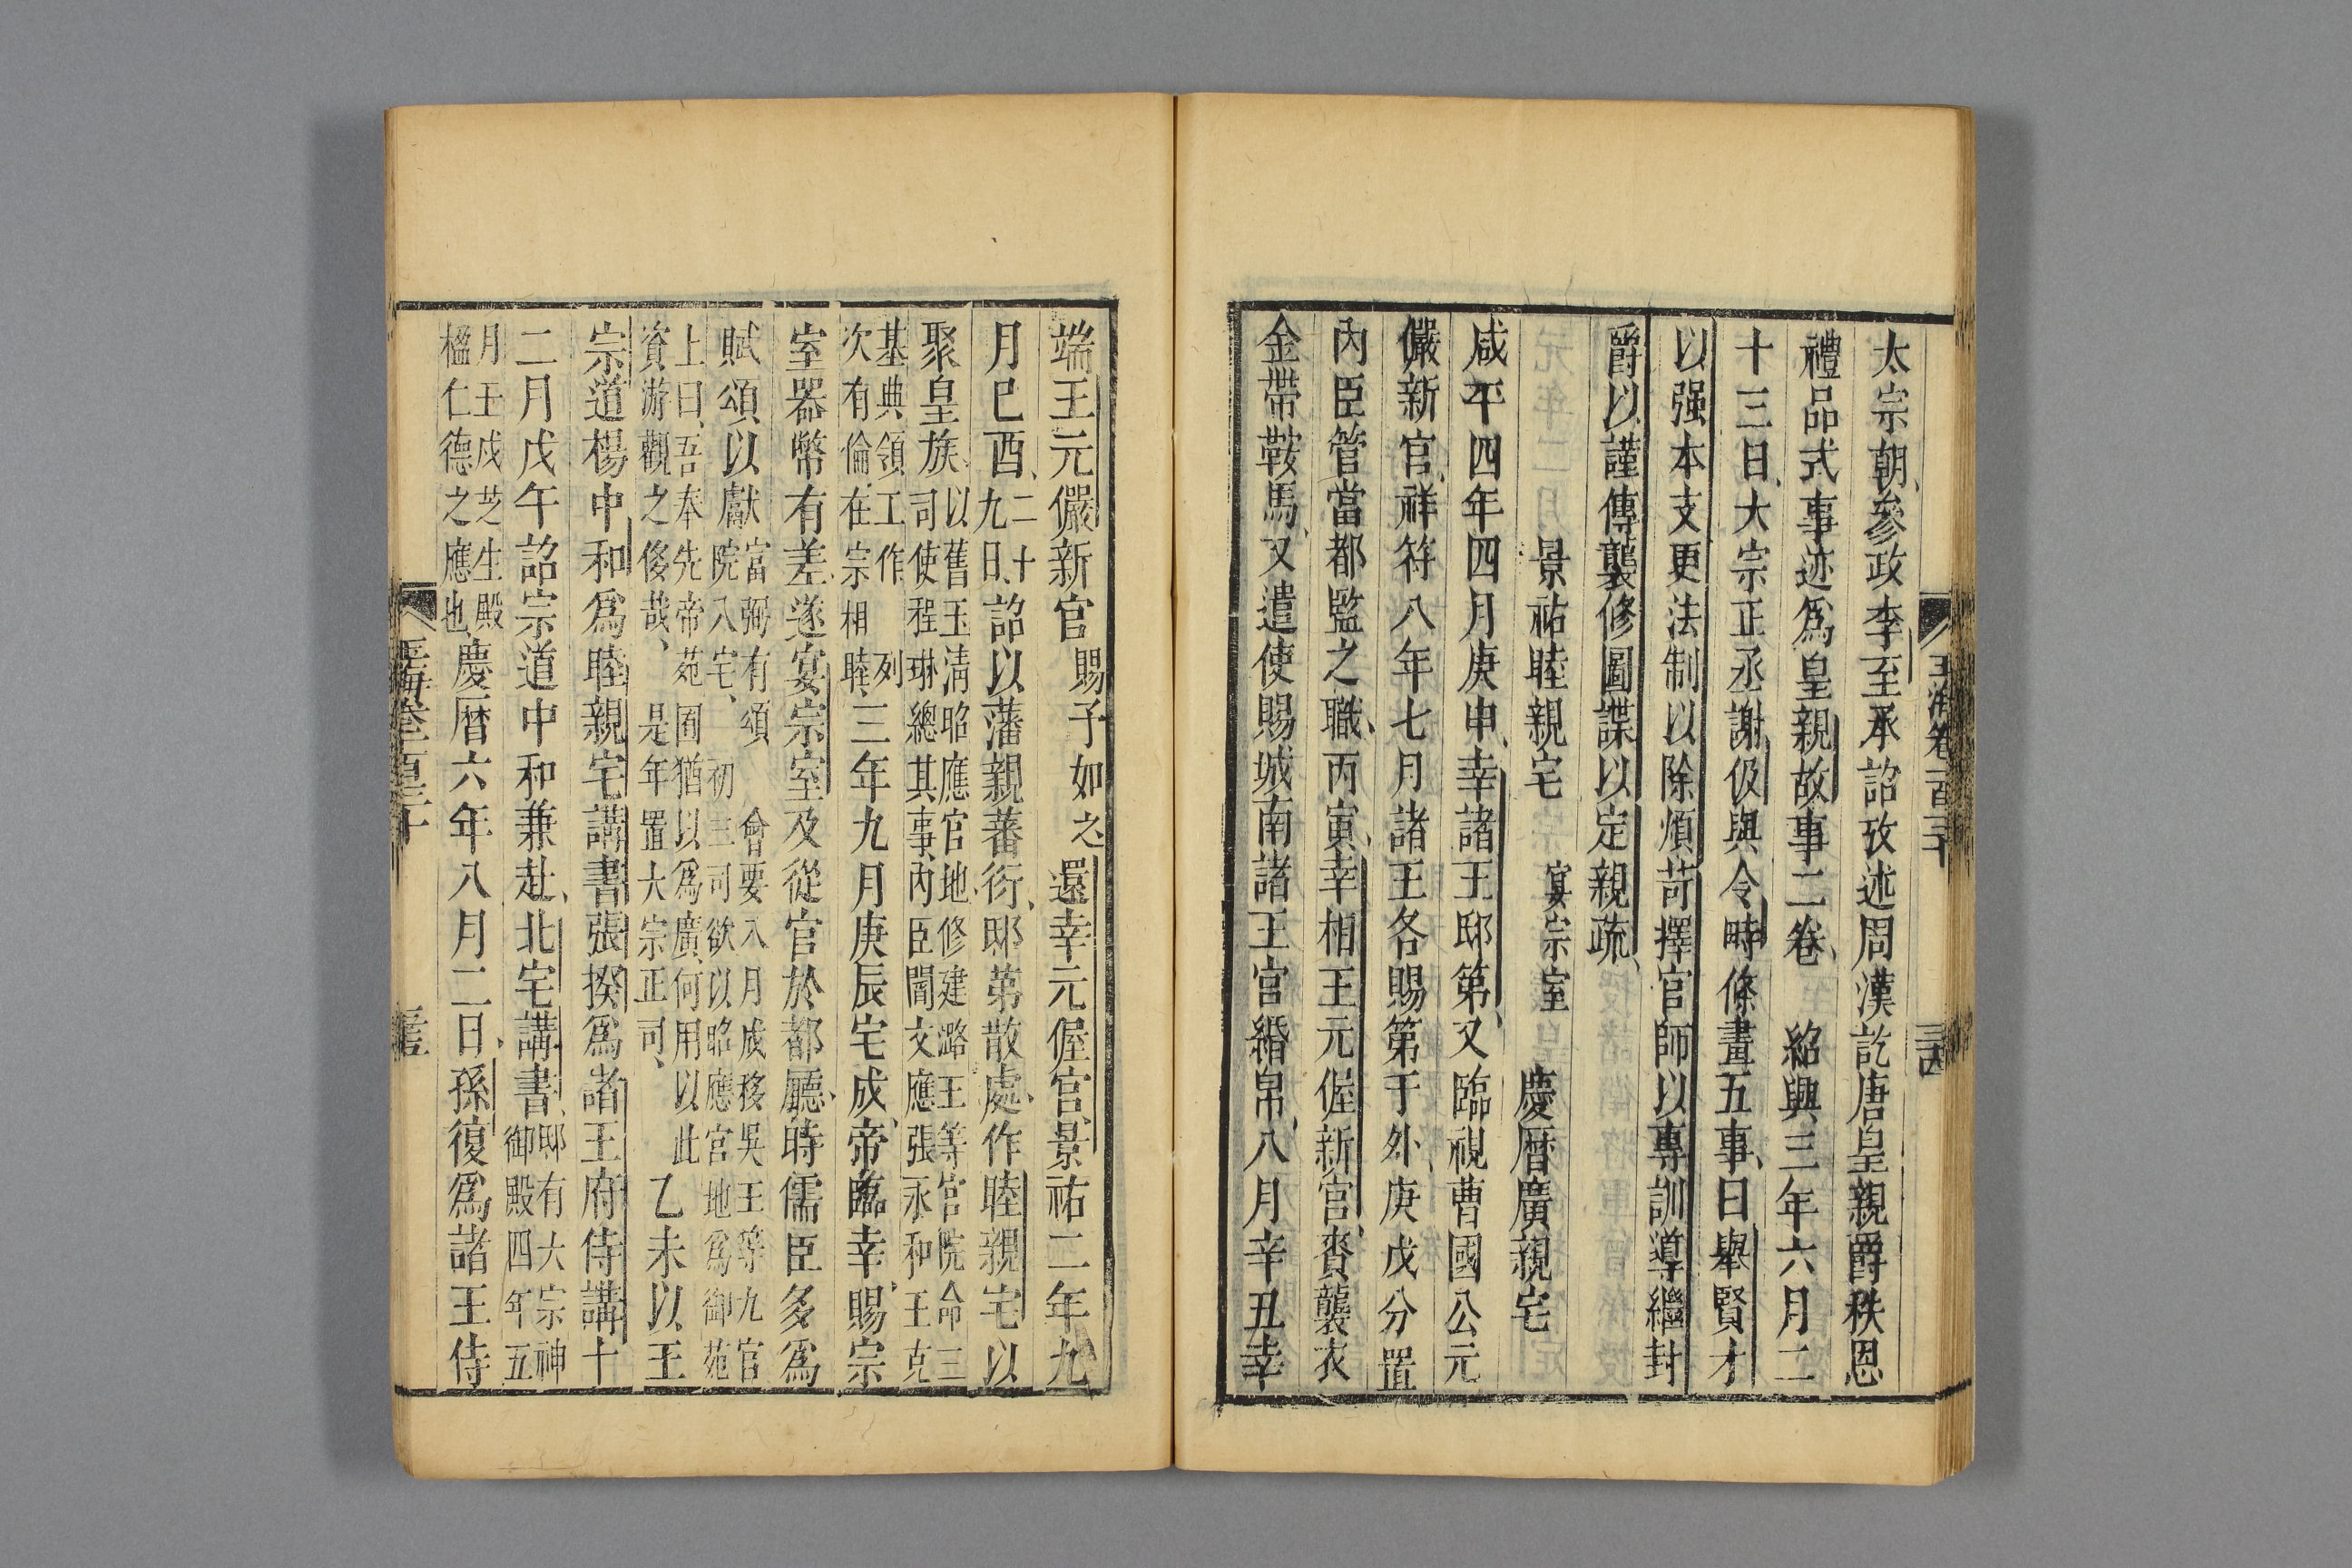 太宗朝參政李至承詔攷述周漢訖唐皇親爵秩恩
禮品式事迹爲皇親故事二卷 紹興三年六月二
十三日大宗正丞謝伋與令時條畫五事曰舉賢才
以强本支更法制以除煩苛擇官師以專訓導繼封
爵以謹傳襲修圖諜以定親疏
景祐睦親宅 宴宗室 慶曆廣親宅
咸平四年四月庚申幸諸王邸第又臨視曹國公元
儼新宫祥符八年七月諸王各賜第于外庚戌分置
内臣管當都監之職丙寅幸相王元偓新宫賚襲衣
金帶鞍馬又遣使賜城南諸王宫緡帛八月辛丑幸
端王元儼新宫賜予如之還幸元偓宫景祐二年九
月已酉
二十
九日
詔以藩親蕃衍邸第散處作睦親宅以
聚皇族
以舊玉清昭應宫地修建潞王等宫院命三
司使程琳總其事内臣閻文應張永和王克
基典領工作 列
次有倫在宗相睦
三年九月庚辰宅成帝臨幸賜宗
室器幣有差遂宴宗室及從官於都廳時儒臣多爲
賦頌以獻
富弼有頌 會要八月成移吳王等九宫
院入宅 初三司欲以昭應宫地爲御苑
上曰吾奉先帝苑囿猶以爲廣何用以此
資游觀之侈哉 是年置大宗正司
乙未以王
宗道楊中和爲睦親宅講書張揆爲諸王府侍講十
二月戊午詔宗道中和兼赴北宅講書
邸有大宗神
御殿四年五
月壬戌芝生殿
楹仁德之應也
慶曆六年八月二日孫復爲諸王侍
玉海卷一百三十
玉海卷一百三十